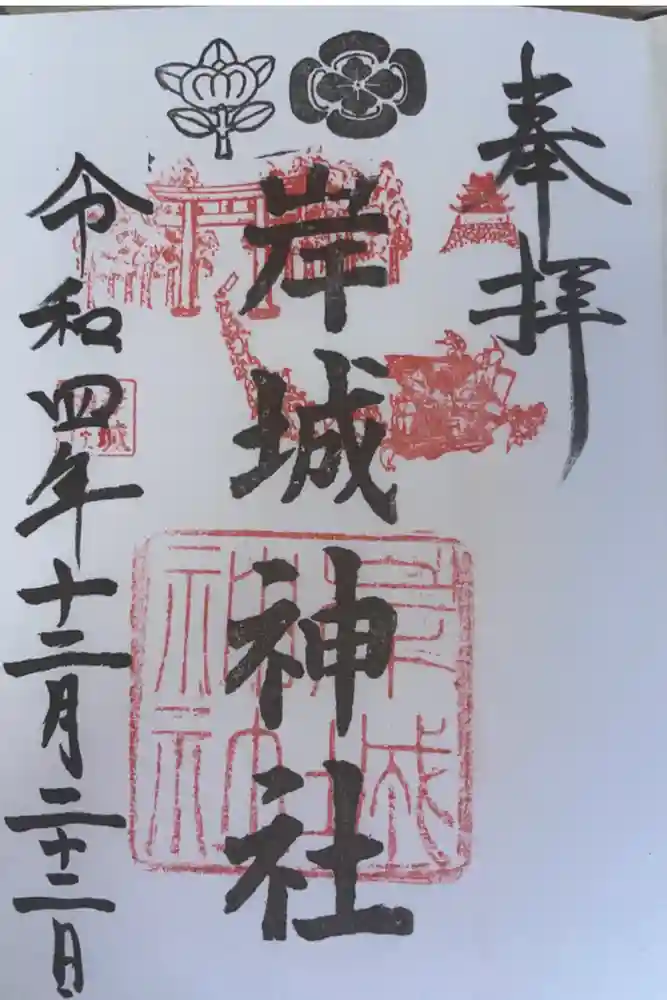 奉拝
岸城神社
令和四年十二月二十二日
岸城
神社